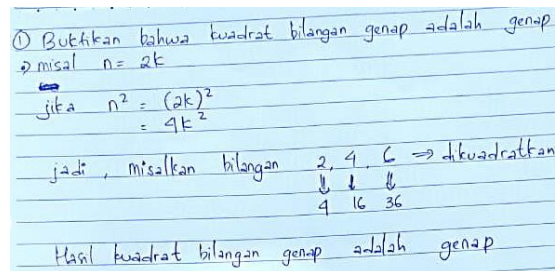 ① Buktikan bahwa kuadrat bilangan genap adalah genap
⇒ misal n = 2k
jika n² = (2k)²
= 4k²
jadi, misalkan bilangan 2, 4, 6 ⇒ dikuadratkan
↓ ↓ ↓
4 16 36
Hasil kuadrat bilangan genap adalah genap